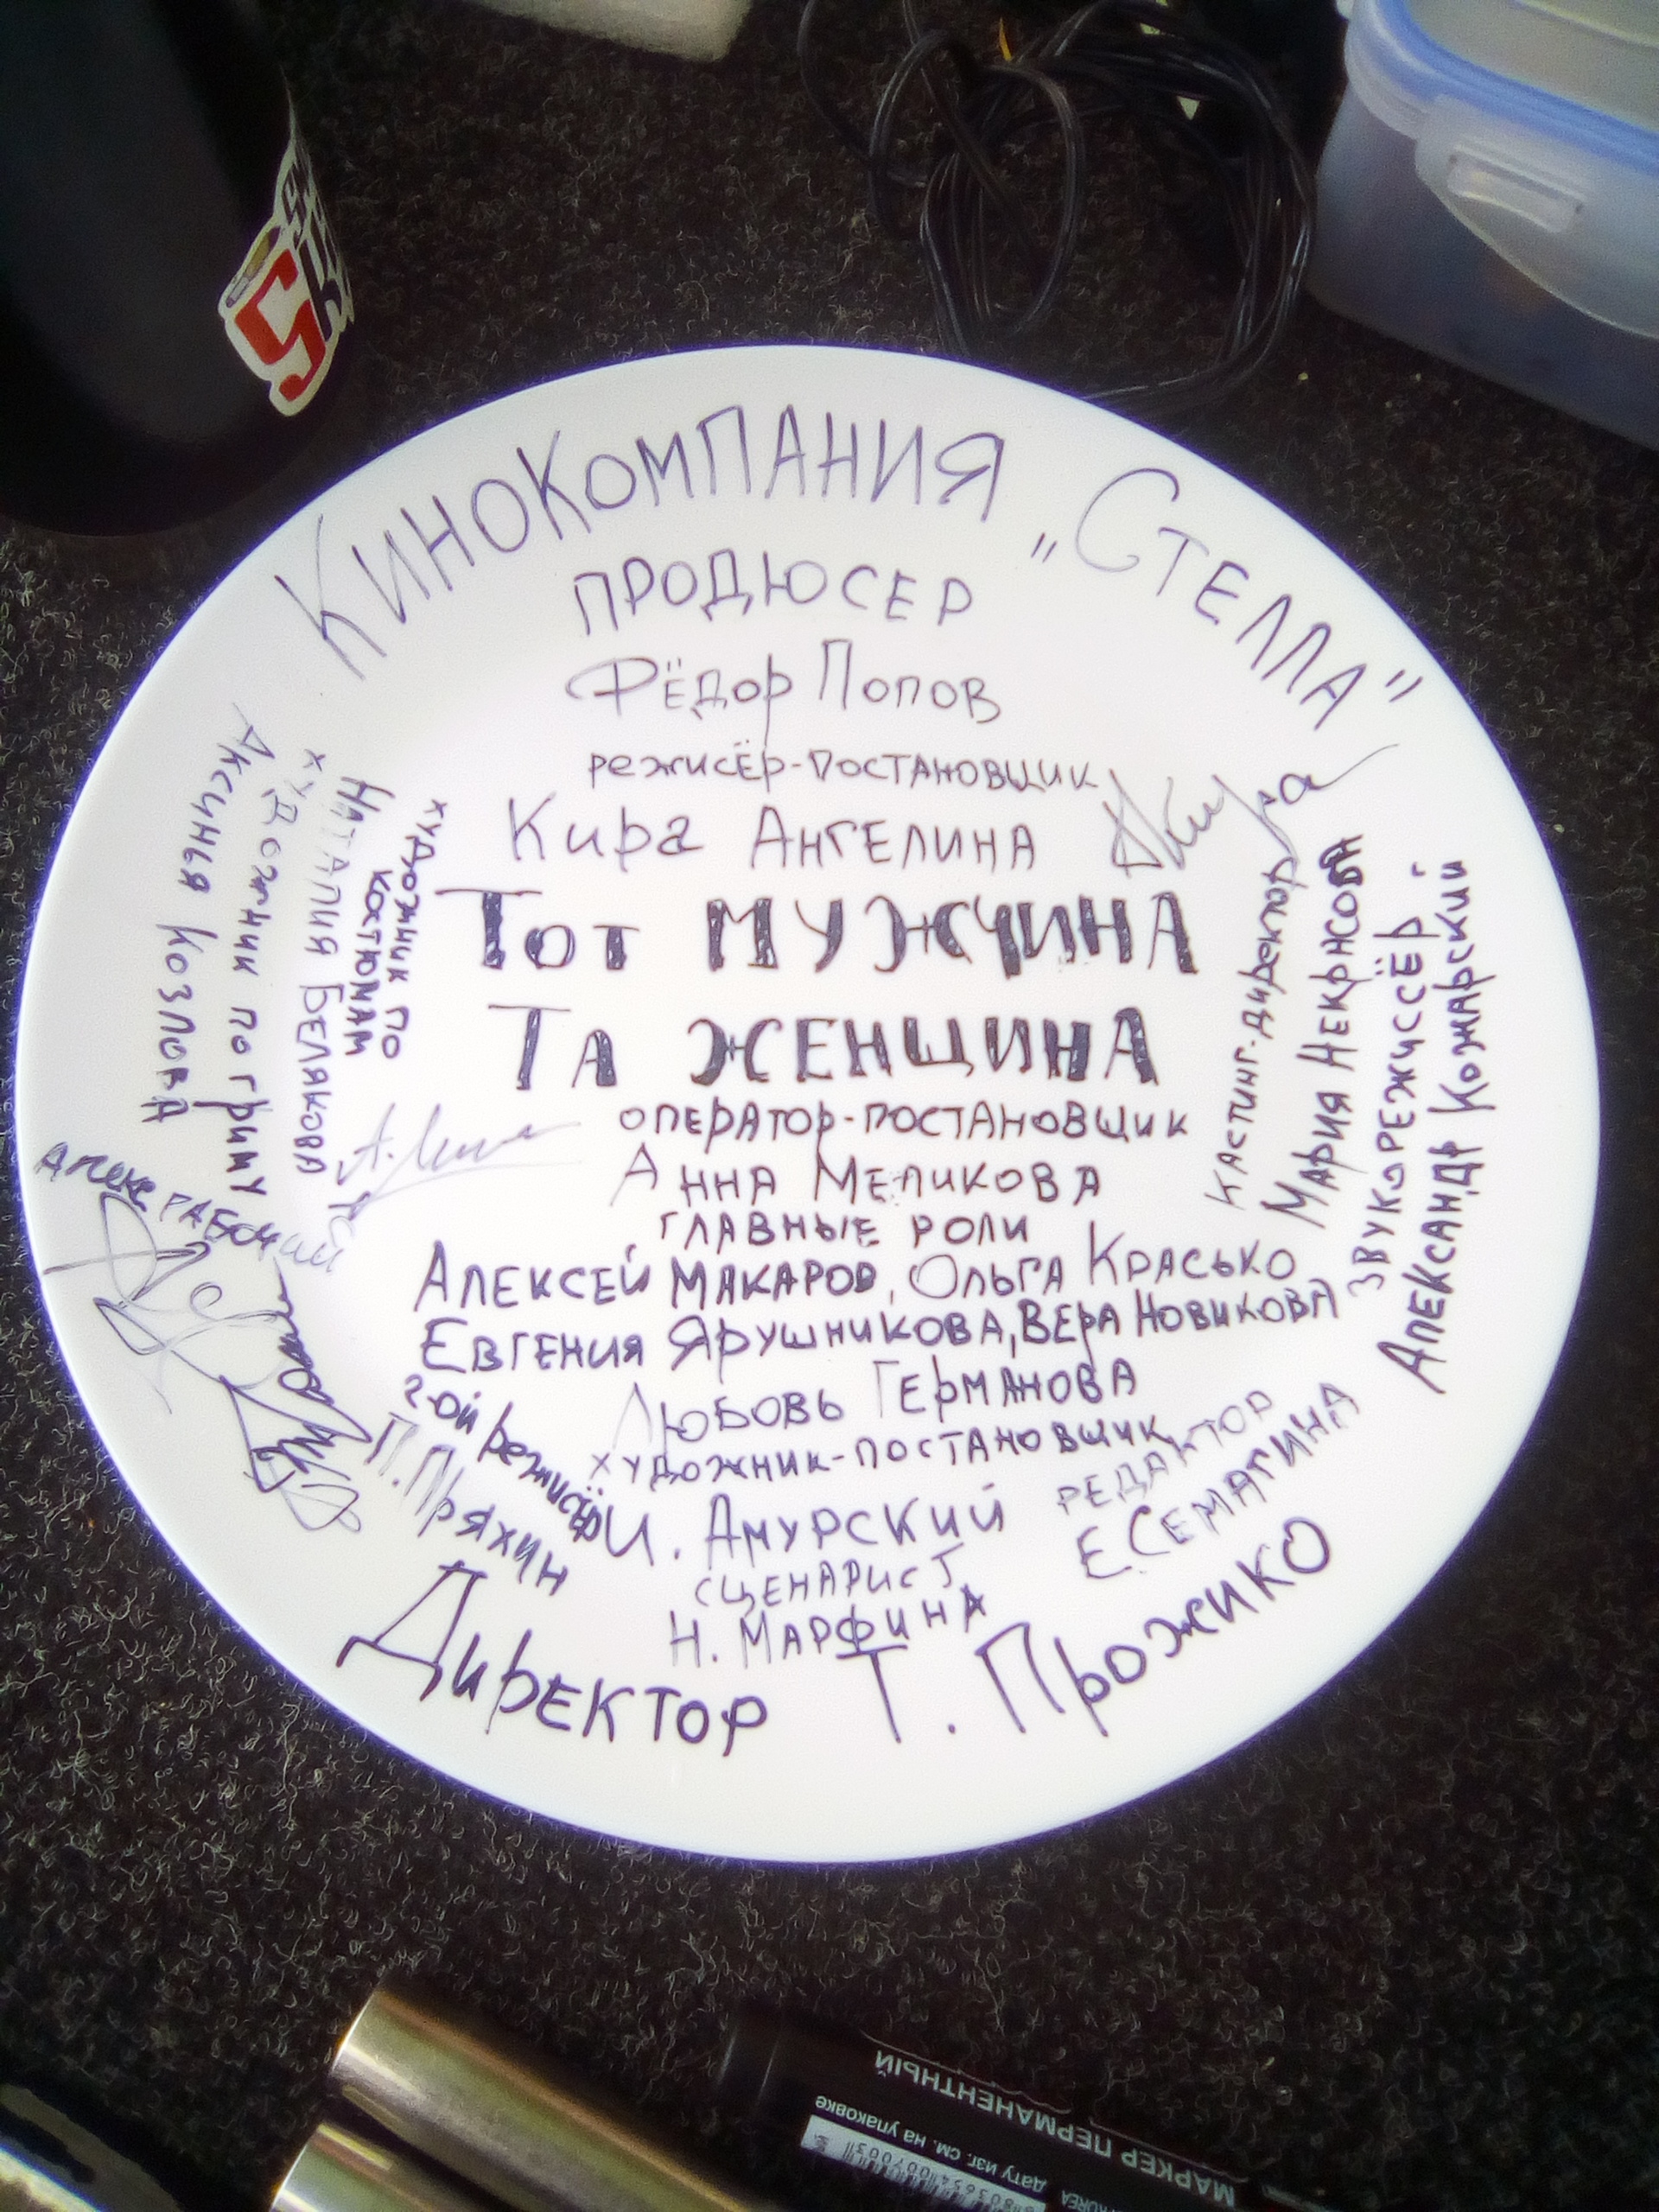 КИНОКОМПАНИЯ „СТЕЛЛА"
ПРОДЮСЕР
Фёдор Попов
режисёр-постановщик
Кира Ангелина
Тот мужчина
Та женщина
оператор-постановщик
Анна Меликова
главные роли
Алексей Макаров, Ольга Красько
Евгения Ярушникова, Вера Новикова
Любовь Германова
художник-постановщик
И. Амурский
сценарист
Н. Марфина
Директор Т. Прожико
редактор
Е. Семагина
2-ой режисёр
П. Пряхин
художник по
костюмам
Наталия Белякова
художник по гриму
Аксинья Козлова
Кастинг-директор
Мария Некрасова
звукорежиссёр-
Александр Кожарский
Кира
МАРКЕР ПЕРМАНЕНТНЫЙ
дату изг. см. на упаковке
KOREA